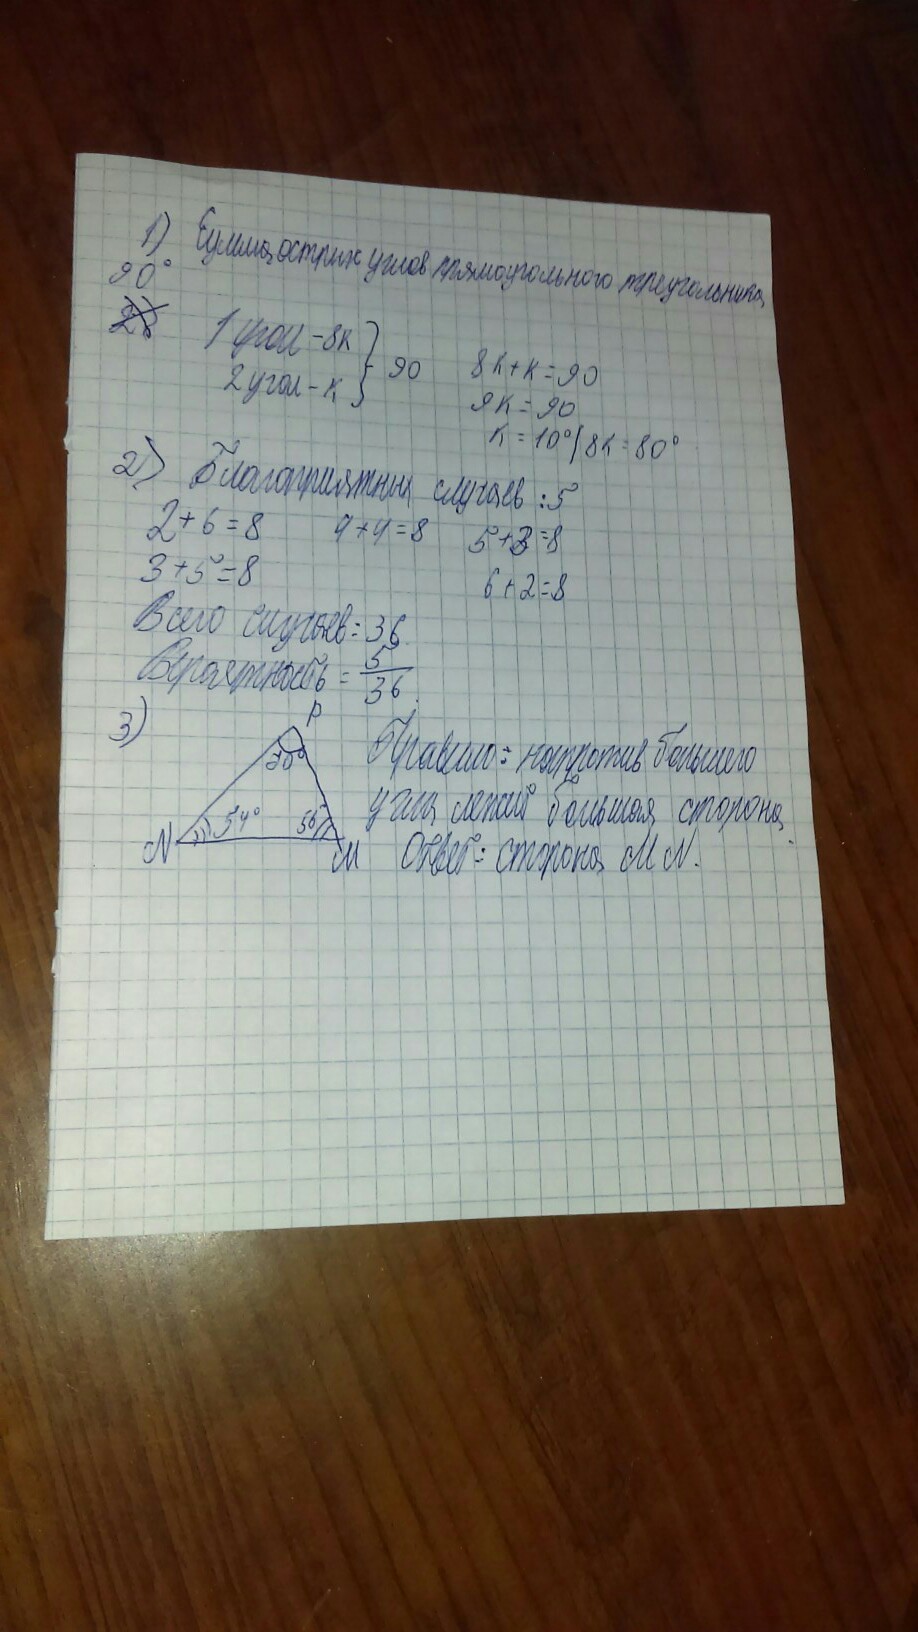 1) Сумма острых углов прямоугольного треугольника
90°
1 угол - 8к } 90 8к+к=90
2 угол - к 9к=90
к=10° / 8к=80°
2) Благоприятных случаев: 5
2+6=8 4+4=8 5+3=8
3+5=8 6+2=8
Всего случаев: 36
Вероятность = 5/36
3)
P
70°
N 54° 56° M
Правило: напротив большего
угла лежит большая сторона.
Ответ: сторона MN.